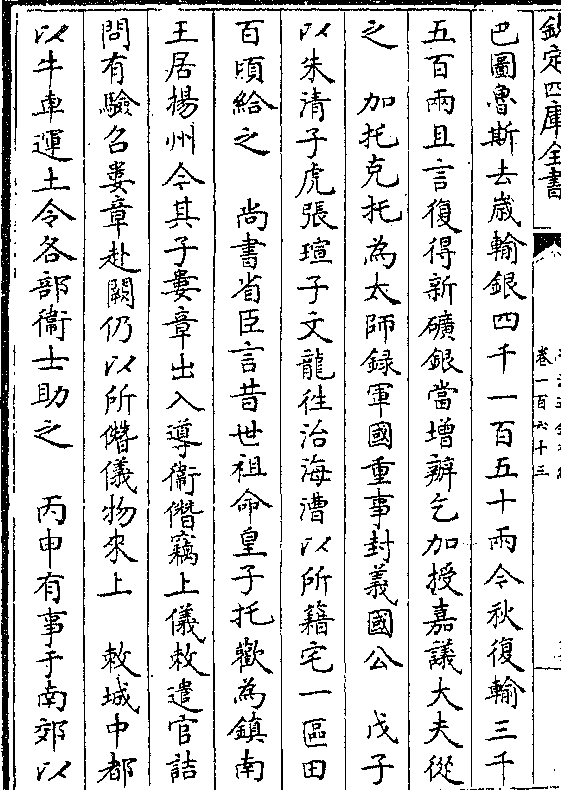 欽定四庫全書
卷一百六十三
巴圖魯斯去歲輸銀四千一百五十兩今秋復輸三千
五百兩且言復得新礦銀當增辦乞加授嘉議大夫從
之　加托克托為太師録軍國重事封義國公　戊子
以朱清子虎張瑄子文龍往治海漕以所籍宅一區田
百頃給之　尚書省臣言昔世祖命皇子托歡為鎮南
王居揚州今其子婁章出入導衞僭竊上儀敕遣官詰
問有驗召婁章赴闕仍以所僭儀物來上　敕城中都
以牛車運土令各部衞士助之　丙申有事于南郊以